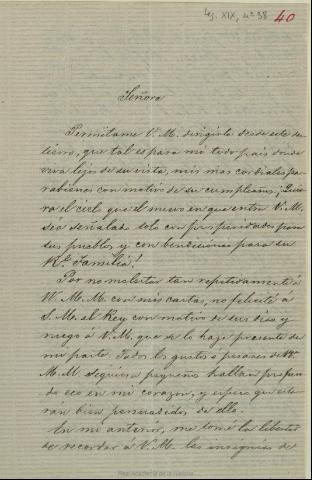 Leg. XIX, nº 38 40
Señora
Permítame V. M. dirigirla desde este des-
tierro, que tal es para mi todo pais donde
viva lejos de su vista, mis mas cordiales pa-
rabienes con motivo de su cumpleaños. ¡Quie-
ra el cielo que el nuevo en que entra V. M.
sea señalado solo con prosperidades para
sus pueblos y con bendiciones para su
Rl. Familia!
Por no molestar tan repetidamente á
VV. M. M. con mis cartas, no felicité á
S. M. el Rey con motivo de sus dias y
ruego á V. M. que se lo haga presente de
mi parte. Todos los gustos o pesares de VV.
M. M. siquiera pequeños hallan profun-
do eco en mi corazon, y espero que esta-
ran bien persuadidos de ello.
En mi anterior, me tomé la libertad
de recordar á V. M. las insignias de
Real Academia de la Historia